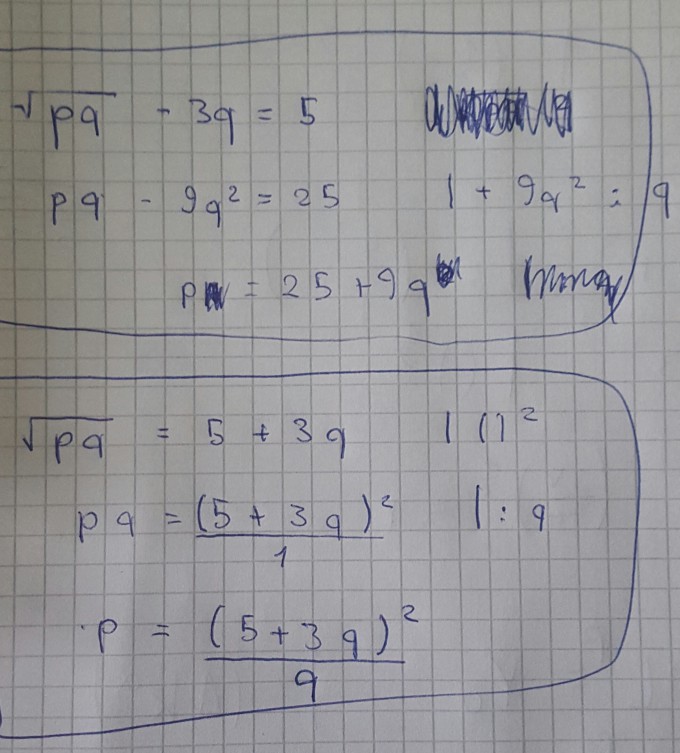 √pq - 3q = 5
pq - 9q² = 25 | + 9q² : q
p = 25 + 9q
√pq = 5 + 3q | ()²
pq = (5 + 3q)²/1 | : q
p = (5 + 3q)²/q